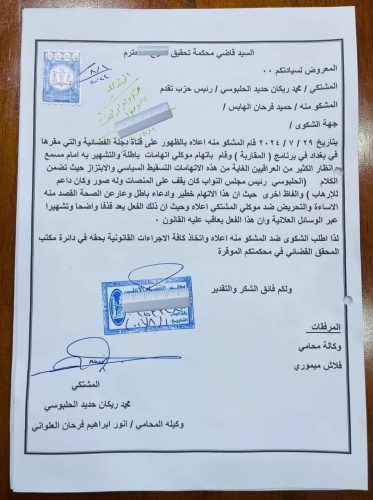 السيد قاضي محكمة تحقيق المحترم
المعروض لسيادتكم ٠٠
المشتكي / محمد ريكان حديد الحلبوسي / رئيس حزب تقدم
المشكو منه / حميد فرحان الهايس /
جهة الشكوى /
بتاريخ ٢٩ / ٧ / ٢٠٢٤ قام المشكو منه اعلاه بالظهور على قناة دجلة الفضائية والتي مقرها
في بغداد في برنامج ( المقاربة ) وقام باتهام موكلي اتهامات باطلة والتشهير به امام مسمع
وانظار الكثير من العراقيين الغاية من هذه الاتهامات التسقيط السياسي والابتزاز حيث تضمن
الكلام (الحلبوسي رئيس مجلس النواب كان يقف على المنصات وله صور وكان داعم
للارهاب ) والفاظ اخرى حيث ان هذا الاتهام خطير وادعاء باطل وعار عن الصحة القصد منه
الاساءة والتحريض ضد موكلي المشتكي اعلاه وحيث ان ذلك الفعل يعد قذفا واضحا وتشهيرا
عبر الوسائل العلانية وان هذا الفعل يعاقب عليه القانون ٠
لذا اطلب الشكوى ضد المشكو منه اعلاه واتخاذ كافة الاجراءات القانونية بحقه في دائرة مكتب
المحقق القضائي في محكمتكم الموقرة
ولكم فائق الشكر والتقدير
المرفقات
وكالة محامي
فلاش ميموري
المشتكي
محمد ريكان حديد الحلبوسي
وكيله المحامي / انور ابراهيم فرحان العلواني